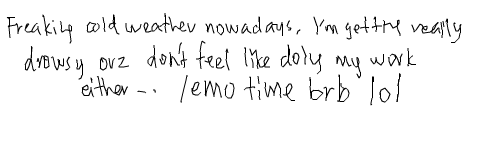 Freaking cold weather nowadays, I'm getting really
drowsy orz don't feel like doing my work
either -.. lemo time brb lol